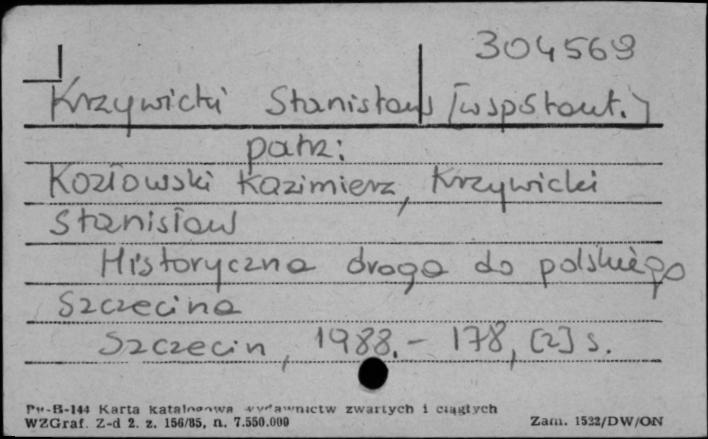 304569
Krzywicki Stanisław [współaut.]
patrz:
Kozłowski Kazimierz, Krzywicki
Stanisław
Historyczna droga do polskiego
Szczecina
Szczecin, 1988. - 178, [2] s.
Pu-B-144 Karta katalogowa wydawnictw zwartych i ciągłych
WZGraf. Z-d 2. z. 156/85, n. 7.550.000 Zam. 1532/DW/ON